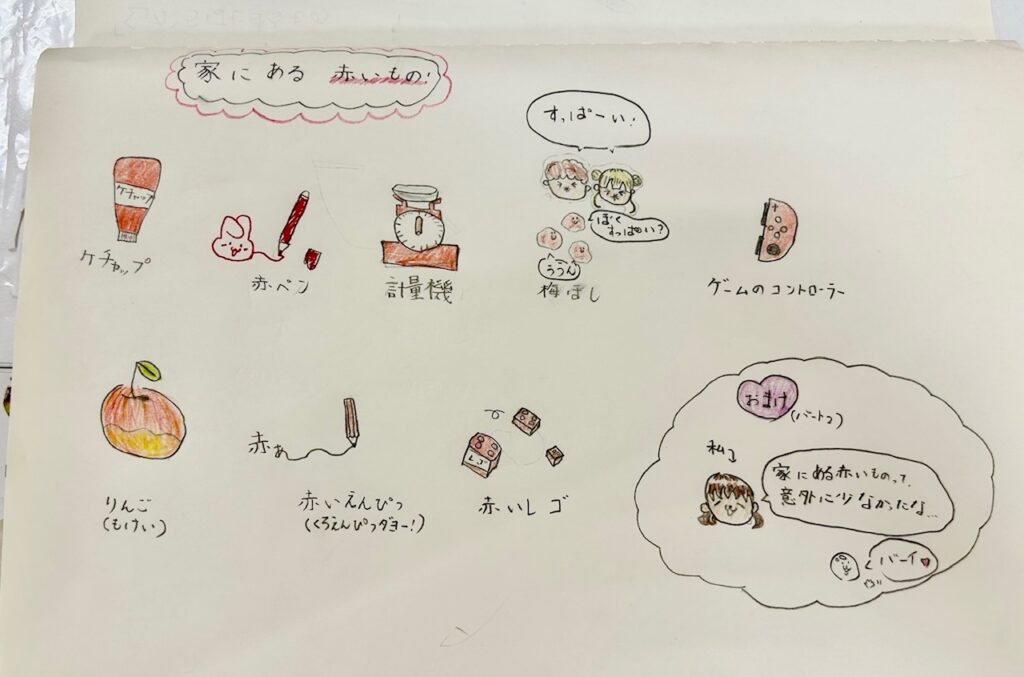 家にある 赤いもの!
すっぱーい!
ぼく
すっぱーい?
ううん
ケチャップ
ケチャップ
赤ペン
計量機
梅ぼし
ゲームのコントローラー
りんご
(もけい)
赤あ
赤いえんぴつ
(くろえんぴつダヨー!)
レゴ
赤いレゴ
おまけ
(パート2)
私
家にある赤いものって、
意外に少なかったな…
バーイ♥